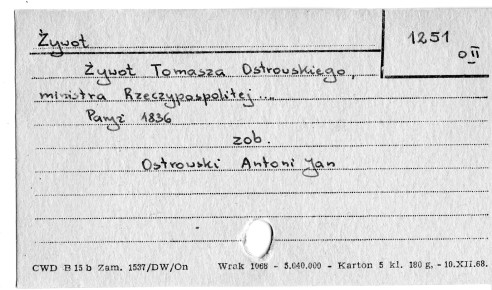 Żywot
1251
o II
Żywot Tomasza Ostrowskiego,
ministra Rzeczypospolitej...
Paryż 1836
zob.
Ostrowski Antoni Jan
CWD B 15 b Zam. 1537/DW/On Wrak 1968 - 5.040.000 - Karton 5 kl. 180 g, - 10.XII.68.